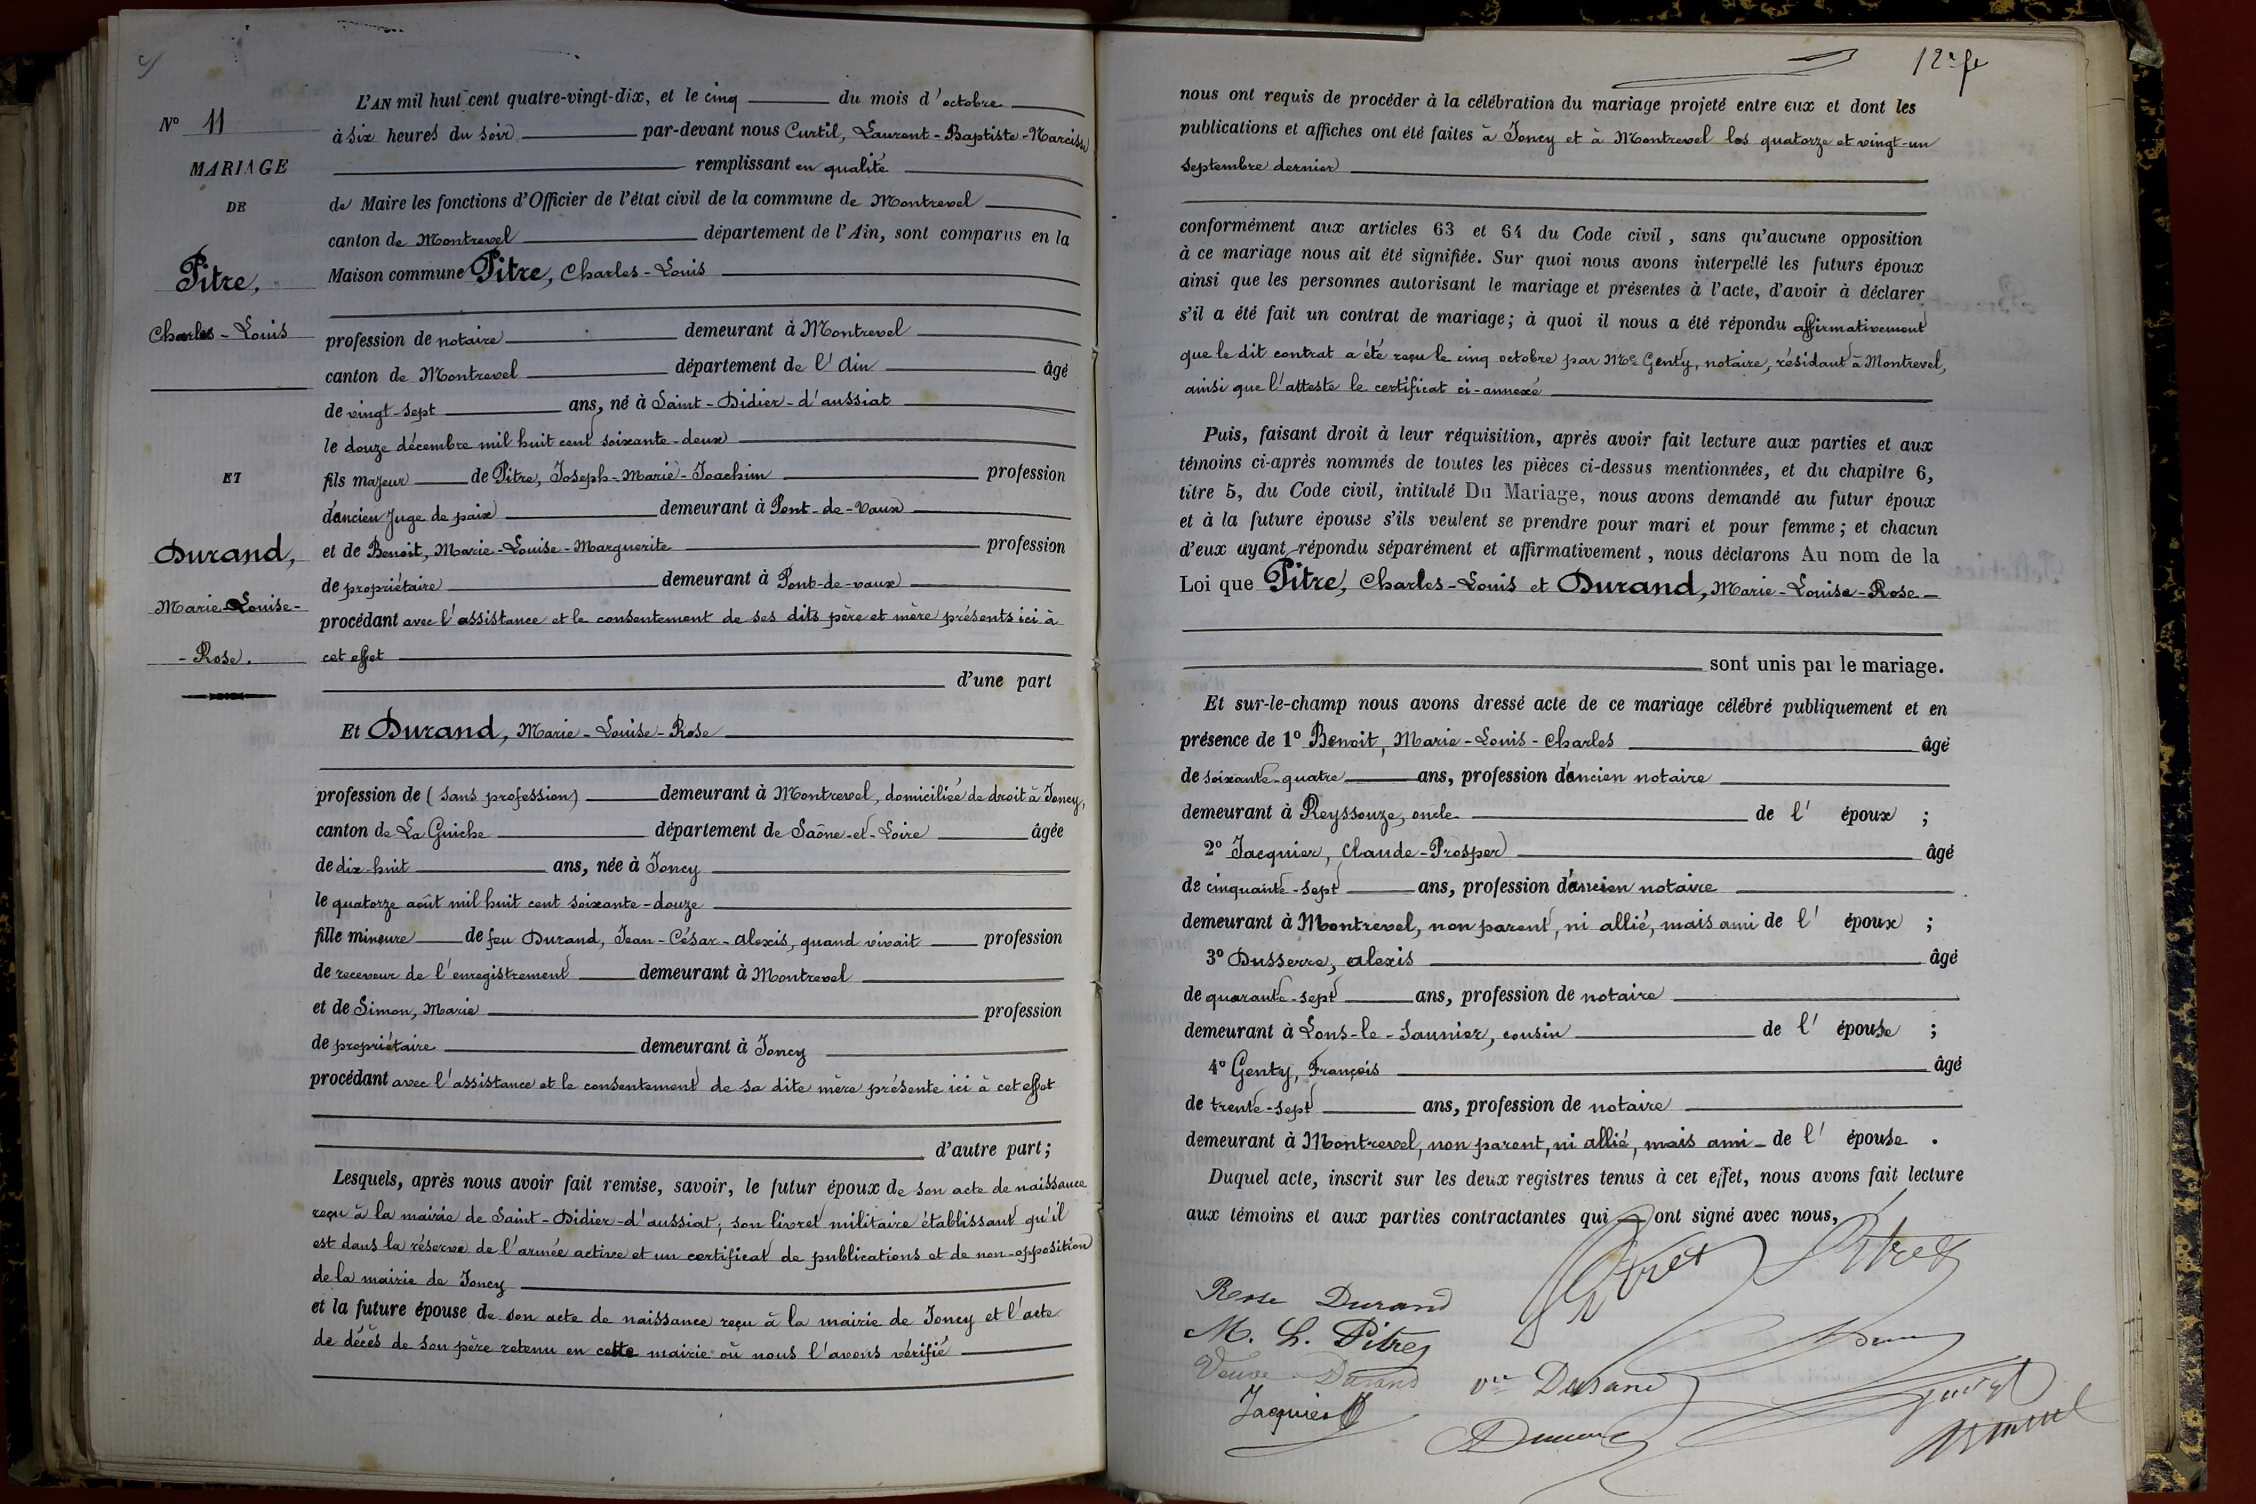 N° 11
MARIAGE
DE
Pitre,
Charles-Louis
ET
Durand,
Marie-Louise-
-Rose.
L'AN mil huit cent quatre-vingt-dix, et le cinq du mois d'octobre
à six heures du soir par-devant nous Curtil, Laurent-Baptiste-Narcisse
remplissant en qualité
de Maire les fonctions d'Officier de l'état civil de la commune de Montrevel
canton de Montrevel département de l'Ain, sont comparus en la
Maison commune Pitre, Charles-Louis
profession de notaire demeurant à Montrevel
canton de Montrevel département de l'Ain âgé
de vingt-sept ans, né à Saint-Didier-d'aussiat
le douze décembre mil huit cent soixante-deux
fils majeur de Pitre, Joseph-Marie-Joachim profession
d'ancien Juge de paix demeurant à Pont-de-Vaux
et de Benoit, Marie-Louise-Marguerite profession
de propriétaire demeurant à Pont-de-vaux
procédant avec l'assistance et le consentement de ses dits père et mère présents ici à
cet effet
d'une part
Et Durand, Marie-Louise-Rose
profession de (sans profession) demeurant à Montrevel, domiciliée de droit à Joncy,
canton de La Guiche département de Saône-et-Loire âgée
de dix-huit ans, née à Joncy
le quatorze août mil huit cent soixante-douze
fille mineure de feu Durand, Jean-César-alexis, quand vivait profession
de receveur de l'enregistrement demeurant à Montrevel
et de Simon, Marie profession
de propriétaire demeurant à Joncy
procédant avec l'assistance et le consentement de sa dite mère présente ici à cet effet
d'autre part;
Lesquels, après nous avoir fait remise, savoir, le futur époux de son acte de naissance
reçu à la mairie de Saint-Didier-d'aussiat, son livret militaire établissant qu'il
est dans la réserve de l'armée active et un certificat de publications et de non-opposition
de la mairie de Joncy
et la future épouse de son acte de naissance reçu à la mairie de Joncy et l'acte
de décès de son père retenu en cette mairie où nous l'avons vérifié
nous ont requis de procéder à la célébration du mariage projeté entre eux et dont les
publications et affiches ont été faites à Joncy et à Montrevel les quatorze et vingt-un
septembre dernier
conformément aux articles 63 et 64 du Code civil, sans qu'aucune opposition
à ce mariage nous ait été signifiée. Sur quoi nous avons interpellé les futurs époux
ainsi que les personnes autorisant le mariage et présentes à l'acte, d'avoir à déclarer
s'il a été fait un contrat de mariage; à quoi il nous a été répondu affirmativement
que le dit contrat a été reçu le cinq octobre par Me Genty, notaire, résidant à Montrevel,
ainsi que l'atteste le certificat ci-annexé
Puis, faisant droit à leur réquisition, après avoir fait lecture aux parties et aux
témoins ci-après nommés de toutes les pièces ci-dessus mentionnées, et du chapitre 6,
titre 5, du Code civil, intitulé Du Mariage, nous avons demandé au futur époux
et à la future épouse s'ils veulent se prendre pour mari et pour femme; et chacun
d'eux ayant répondu séparément et affirmativement, nous déclarons Au nom de la
Loi que Pitre, Charles-Louis et Durand, Marie-Louise-Rose
sont unis par le mariage.
Et sur-le-champ nous avons dressé acte de ce mariage célébré publiquement et en
présence de 1° Benoit, Marie-Louis-Charles âgé
de soixante-quatre ans, profession d'ancien notaire
demeurant à Reyssouze, oncle de l'époux;
2° Jacquier, Claude-Prosper âgé
de cinquante-sept ans, profession d'ancien notaire
demeurant à Montrevel, non parent, ni allié, mais ami de l'époux;
3° Dusserre, alexis âgé
de quarante-sept ans, profession de notaire
demeurant à Lons-le-Saunier, cousin de l'épouse;
4° Genty, François âgé
de trente-sept ans, profession de notaire
demeurant à Montrevel, non parent, ni allié, mais ami de l'épouse.
Duquel acte, inscrit sur les deux registres tenus à cet effet, nous avons fait lecture
aux témoins et aux parties contractantes qui ont signé avec nous,
Pitre
Rose Durand
M. L. Pitre
Veuve Durand
Vve Durand
Jacquier